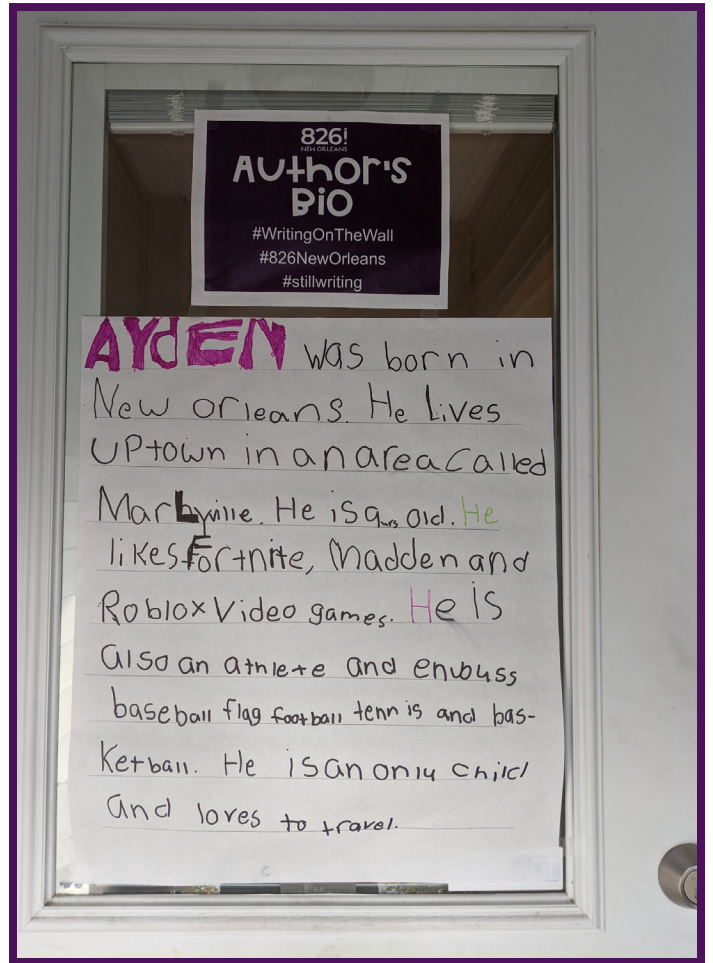 826!
NEW ORLEANS
AUthor's
BiO
#WritingOnTheWall
#826NewOrleans
#stillwriting
AYdEN was born in
New orleans. He Lives
UPtown in an area called
Marlyville. He is 9yrs old. He
likes Fortnite, Madden and
Roblox Video games. He is
also an athlete and
baseball flag football tennis and bas-
ketball. He is an only child
and loves to travel.